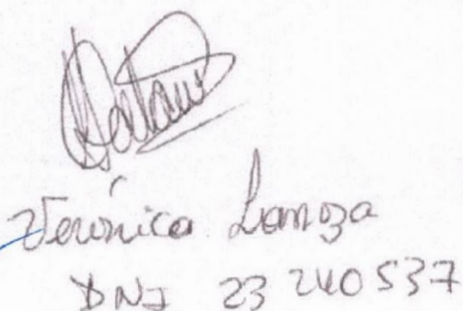 Verónica Lanoza
DNI 23 240 537